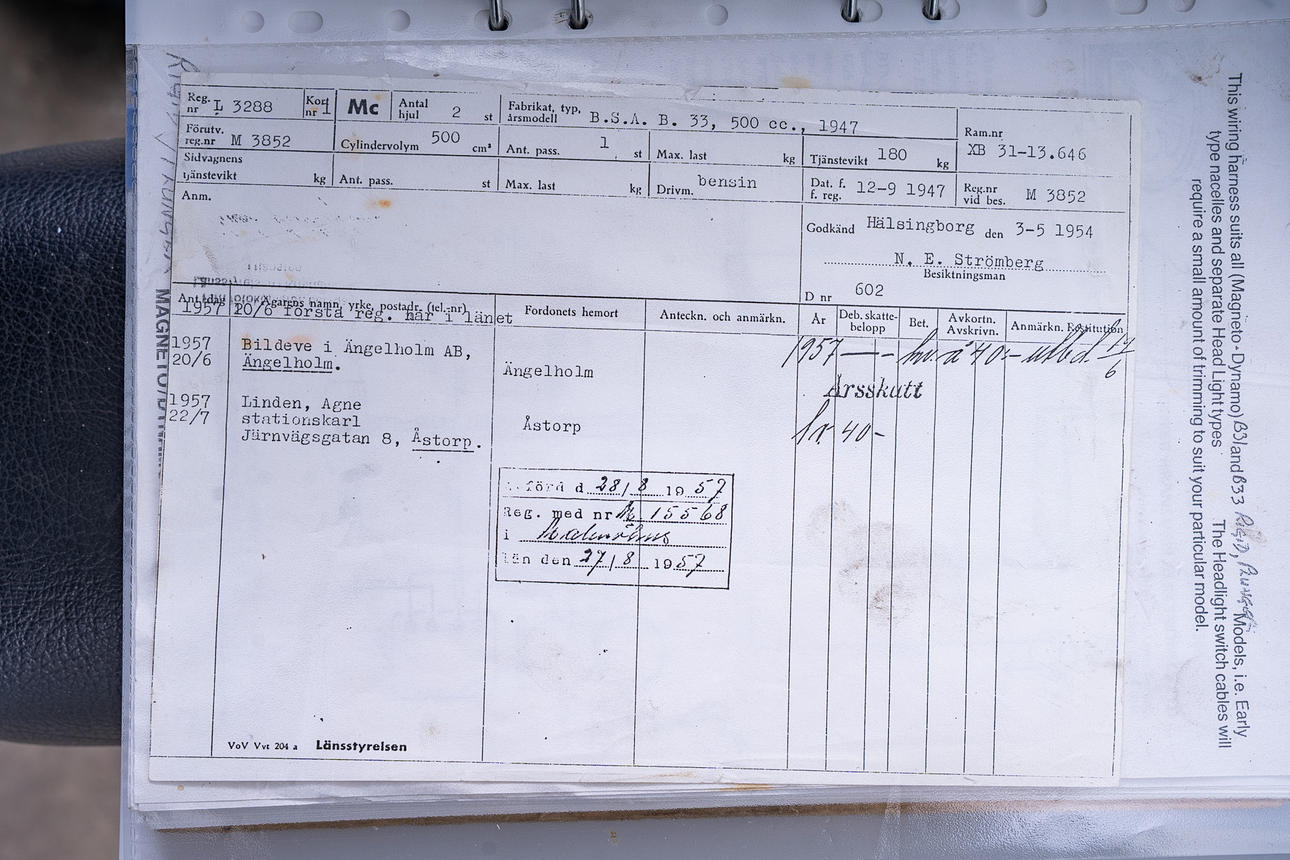 Reg. nr L 3288
Kort nr 1
Mc
Antal hjul 2 st
Fabrikat, typ, årsmodell B.S.A. B. 33, 500 cc., 1947
Ram.nr
XB 31-13.646
Förutv. reg.nr M 3852
Cylindervolym 500 cm³
Ant. pass. 1 st
Max. last kg
Tjänstevikt 180 kg
Sidvagns tjänstevikt kg
Ant. pass. st
Max. last kg
Drivm. bensin
Dat. f. f. reg. 12-9 1947
Reg.nr vid bes. M 3852
Anm.
Godkänd Hälsingborg den 3-5 1954
N. E. Strömberg
Besiktningsman
D nr 602
Ägarens namn, yrke, postadr. (tel.-nr)
Fordonets hemort
Anteckn. och anmärkn.
År
Deb. skatte-
belopp
Bet.
Avkortn.
Avskrivn.
Anmärkn. Restitution
1957 20/6 första reg. här i länet
1957 Bildeve i Ängelholm AB,
20/6 Ängelholm.
Ängelholm
1957 40
Årsskutt
1957 Linden, Agne
22/7 stationskarl
Järnvägsgatan 8, Åstorp.
Åstorp
kr 40-
förd d. 28/8 1957
Reg. med nr M. 15568
i Malmöhus
län den 27/8 1957
VoV Vvt 204 a Länsstyrelsen
This wiring harness suits all (Magneto-Dynamo) B31 and B33 RIGID, PLUNGER Models, i.e. Early
type nacelles and separate Head Light types The Headlight switch cables will
require a small amount of trimming to suit your particular model.
PLUNGER MAGNETO/